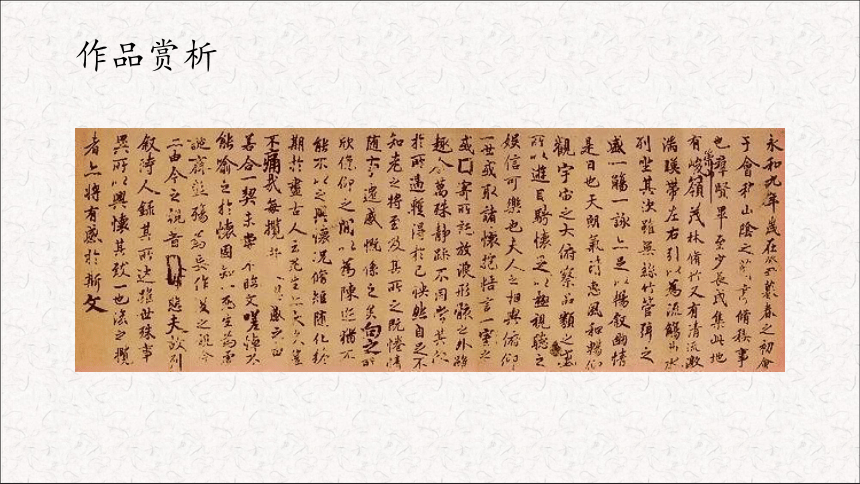 作品赏析
永和九年歲在癸丑暮春之初會
于會稽山陰之蘭亭脩稧事
也羣賢畢至少長咸集此地
有崇山峻領茂林脩竹又有清流激
湍暎帶左右引以為流觴曲水
列坐其次雖無絲竹管弦之
盛一觴一詠亦足以暢敘幽情
是日也天朗氣清惠風和暢仰
觀宇宙之大俯察品類之盛
所以遊目騁懷足以極視聽之
娛信可樂也夫人之相與俯仰
一世或取諸懷抱悟言一室之
或因寄所託放浪形骸之外雖
趣舍萬殊靜躁不同當其欣
於所遇蹔得於己怏然自足不
知老之將至及其所之既惓情
隨事遷感慨係之矣向之所
欣俛仰之間以為陳迹猶不
能不以之興懷況脩短隨化終
期於盡古人云死生亦大矣豈
不痛哉每攬昔人興感之由
若合一契未嘗不臨文嗟悼不
能喻之於懷固知一死生為虛
誕齊彭殤為妄作後之視今
亦由今之視昔悲夫故列
敘時人錄其所述雖世殊事
異所以興懷其致一也後之攬
者亦將有感於斯文